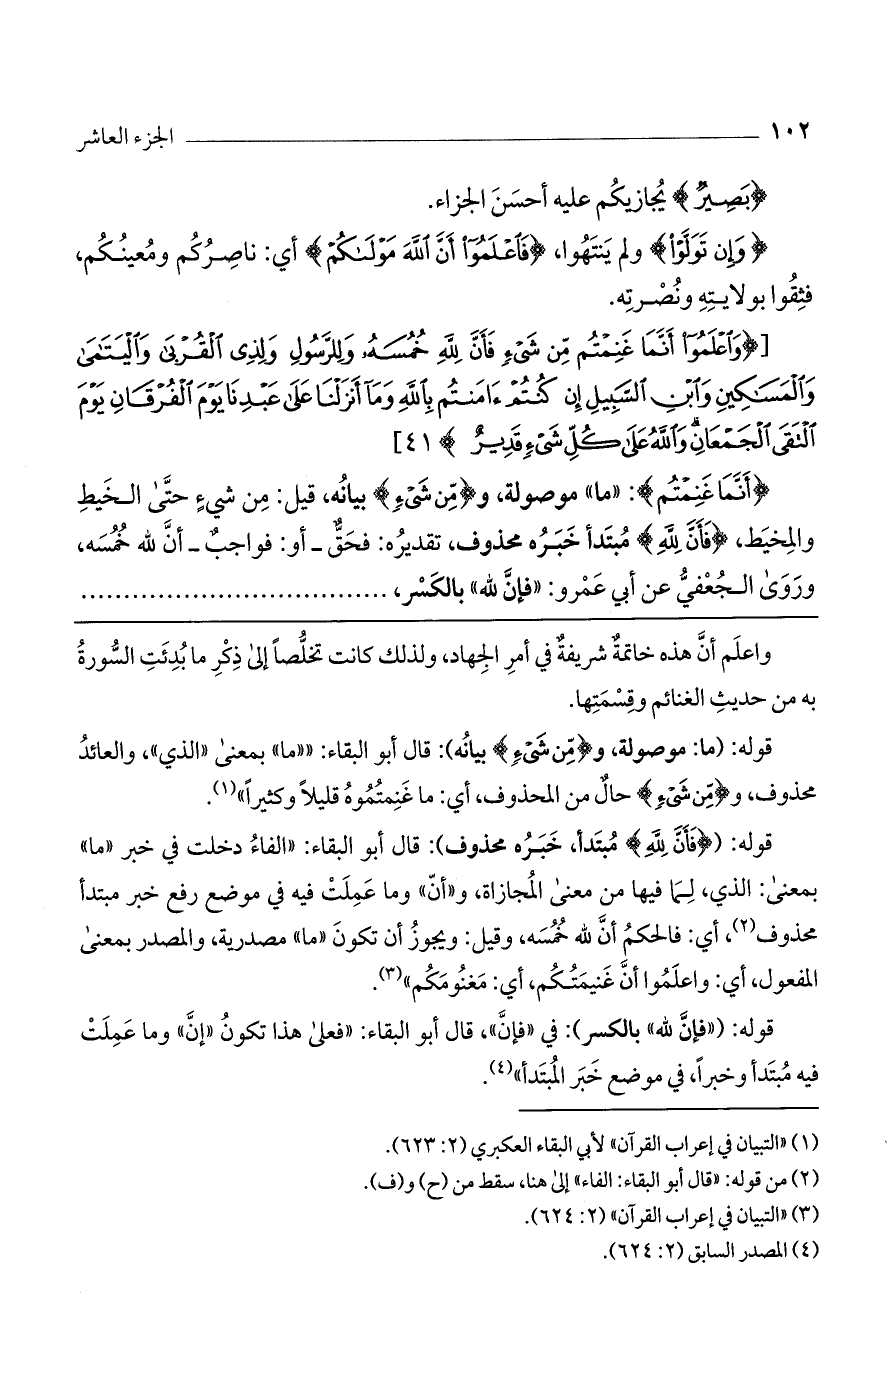 ١٠٢ الجزء العاشر
﴿بَصِيرٌ﴾ يُجازيكُم عليه أحسَنَ الجزاء.
﴿وَإِن تَوَلَّوْاْ﴾ ولم يَنتَهُوا، ﴿فَٱعْلَمُوٓاْ أَنَّ ٱللَّهَ مَوْلَىٰكُمْ﴾ أي: ناصِرُكُم ومُعينُكُم،
فثِقُوا بولايتِهِ ونُصْرتِه.
[﴿وَٱعْلَمُوٓاْ أَنَّمَا غَنِمْتُم مِّن شَىْءٍ فَأَنَّ لِلَّهِ خُمُسَهُۥ وَلِلرَّسُولِ وَلِذِى ٱلْقُرْبَىٰ وَٱلْيَتَٰمَىٰ
وَٱلْمَسَٰكِينِ وَٱبْنِ ٱلسَّبِيلِ إِن كُنتُمْ ءَامَنتُم بِٱللَّهِ وَمَآ أَنزَلْنَا عَلَىٰ عَبْدِنَا يَوْمَ ٱلْفُرْقَانِ يَوْمَ
ٱلْتَقَى ٱلْجَمْعَانِۗ وَٱللَّهُ عَلَىٰ كُلِّ شَىْءٍ قَدِيرٌ﴾ ٤١]
﴿أَنَّمَا غَنِمْتُم﴾: «ما» موصولة، و﴿مِّن شَىْءٍ﴾ بيانُه، قيل: مِن شيءٍ حتَّىٰ الخَيطِ
والمِخيَط، ﴿فَأَنَّ لِلَّهِ﴾ مُبتَدأ خَبَرُه محذوف، تقديرُه: فحَقٌّ ـ أو: فواجبٌ ـ أنَّ لله خُمُسَه،
ورَوَىٰ الجُعْفيُّ عن أبي عَمْرو: «فإنَّ لله» بالكَسْر، ....................................
واعلَم أنَّ هذه خاتمةٌ شريفةٌ في أمرِ الجِهاد، ولذلك كانت تخلُّصاً إلىٰ ذِكْرِ ما بُدِئَتِ السُّورةُ
به من حديثِ الغنائم وقِسْمَتِها.
قوله: (ما: موصولة، و﴿مِّن شَىْءٍ﴾ بيانُه): قال أبو البقاء: ««ما» بمعنىٰ «الذي»، والعائدُ
محذوف، و﴿مِّن شَىْءٍ﴾ حالٌ من المحذوف، أي: ما غَنِمتُمُوهُ قليلاً وكثيراً»(١).
قوله: (﴿فَأَنَّ لِلَّهِ﴾ مُبتَدأ، خَبَرُه محذوف): قال أبو البقاء: «الفاءُ دخلت في خبر «ما»
بمعنىٰ: الذي، لِمَا فيها من معنىٰ المُجازاة، و«أنّ» وما عَمِلَتْ فيه في موضع رفع خبر مبتدأ
محذوف(٢)، أي: فالحكمُ أنَّ لله خُمُسَه، وقيل: ويجوزُ أن تكونَ «ما» مصدرية، والمصدر بمعنىٰ
المفعول، أي: واعلَمُوا أنَّ غَنيمَتَكُم، أي: مَغنُومَكُم»(٣).
قوله: («فإنَّ لله» بالكسر): في «فإنَّ»، قال أبو البقاء: «فعلىٰ هذا تكونُ «إنَّ» وما عَمِلَتْ
فيه مُبتَدأ وخبراً، في موضع خَبَر المُبتَدأ»(٤).
(١) «التبيان في إعراب القرآن» لأبي البقاء العكبري (٢: ٦٢٣).
(٢) من قوله: «قال أبو البقاء: الفاء» إلىٰ هنا، سقط من (ح) و(ف).
(٣) «التبيان في إعراب القرآن» (٢: ٦٢٤).
(٤) المصدر السابق (٢: ٦٢٤).